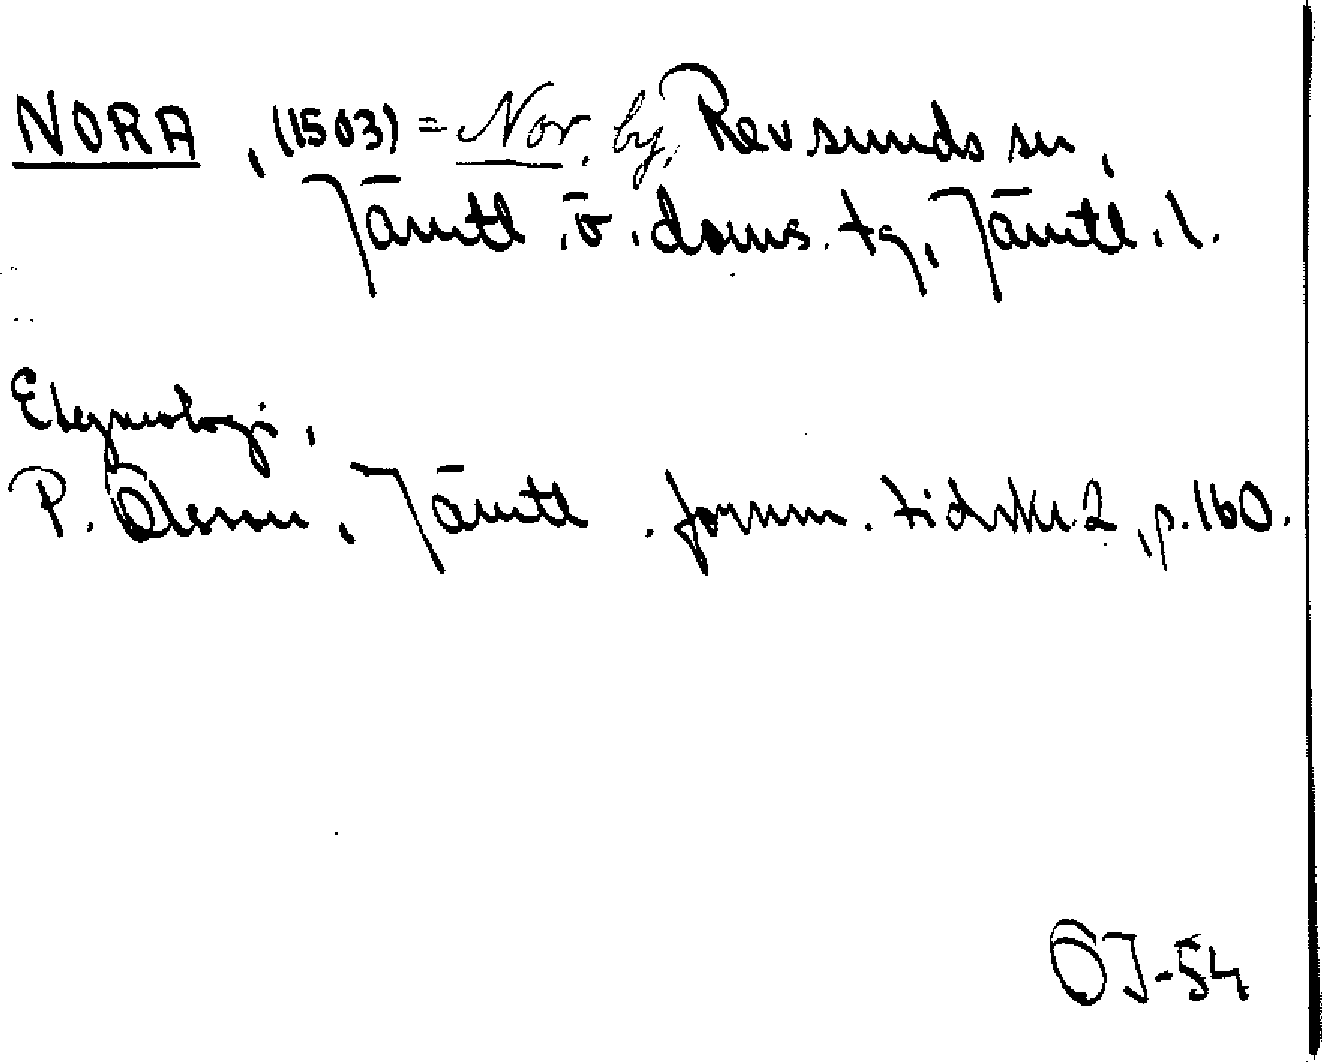 NORA, (1503) = Nor, by, Revsunds sn,
Jämtl. ö. doms. tg, Jämtl. l.
Etymologi,
P. Olsson, Jämtl. fornm. tidskr. 2, p. 160.
ÖJ-54